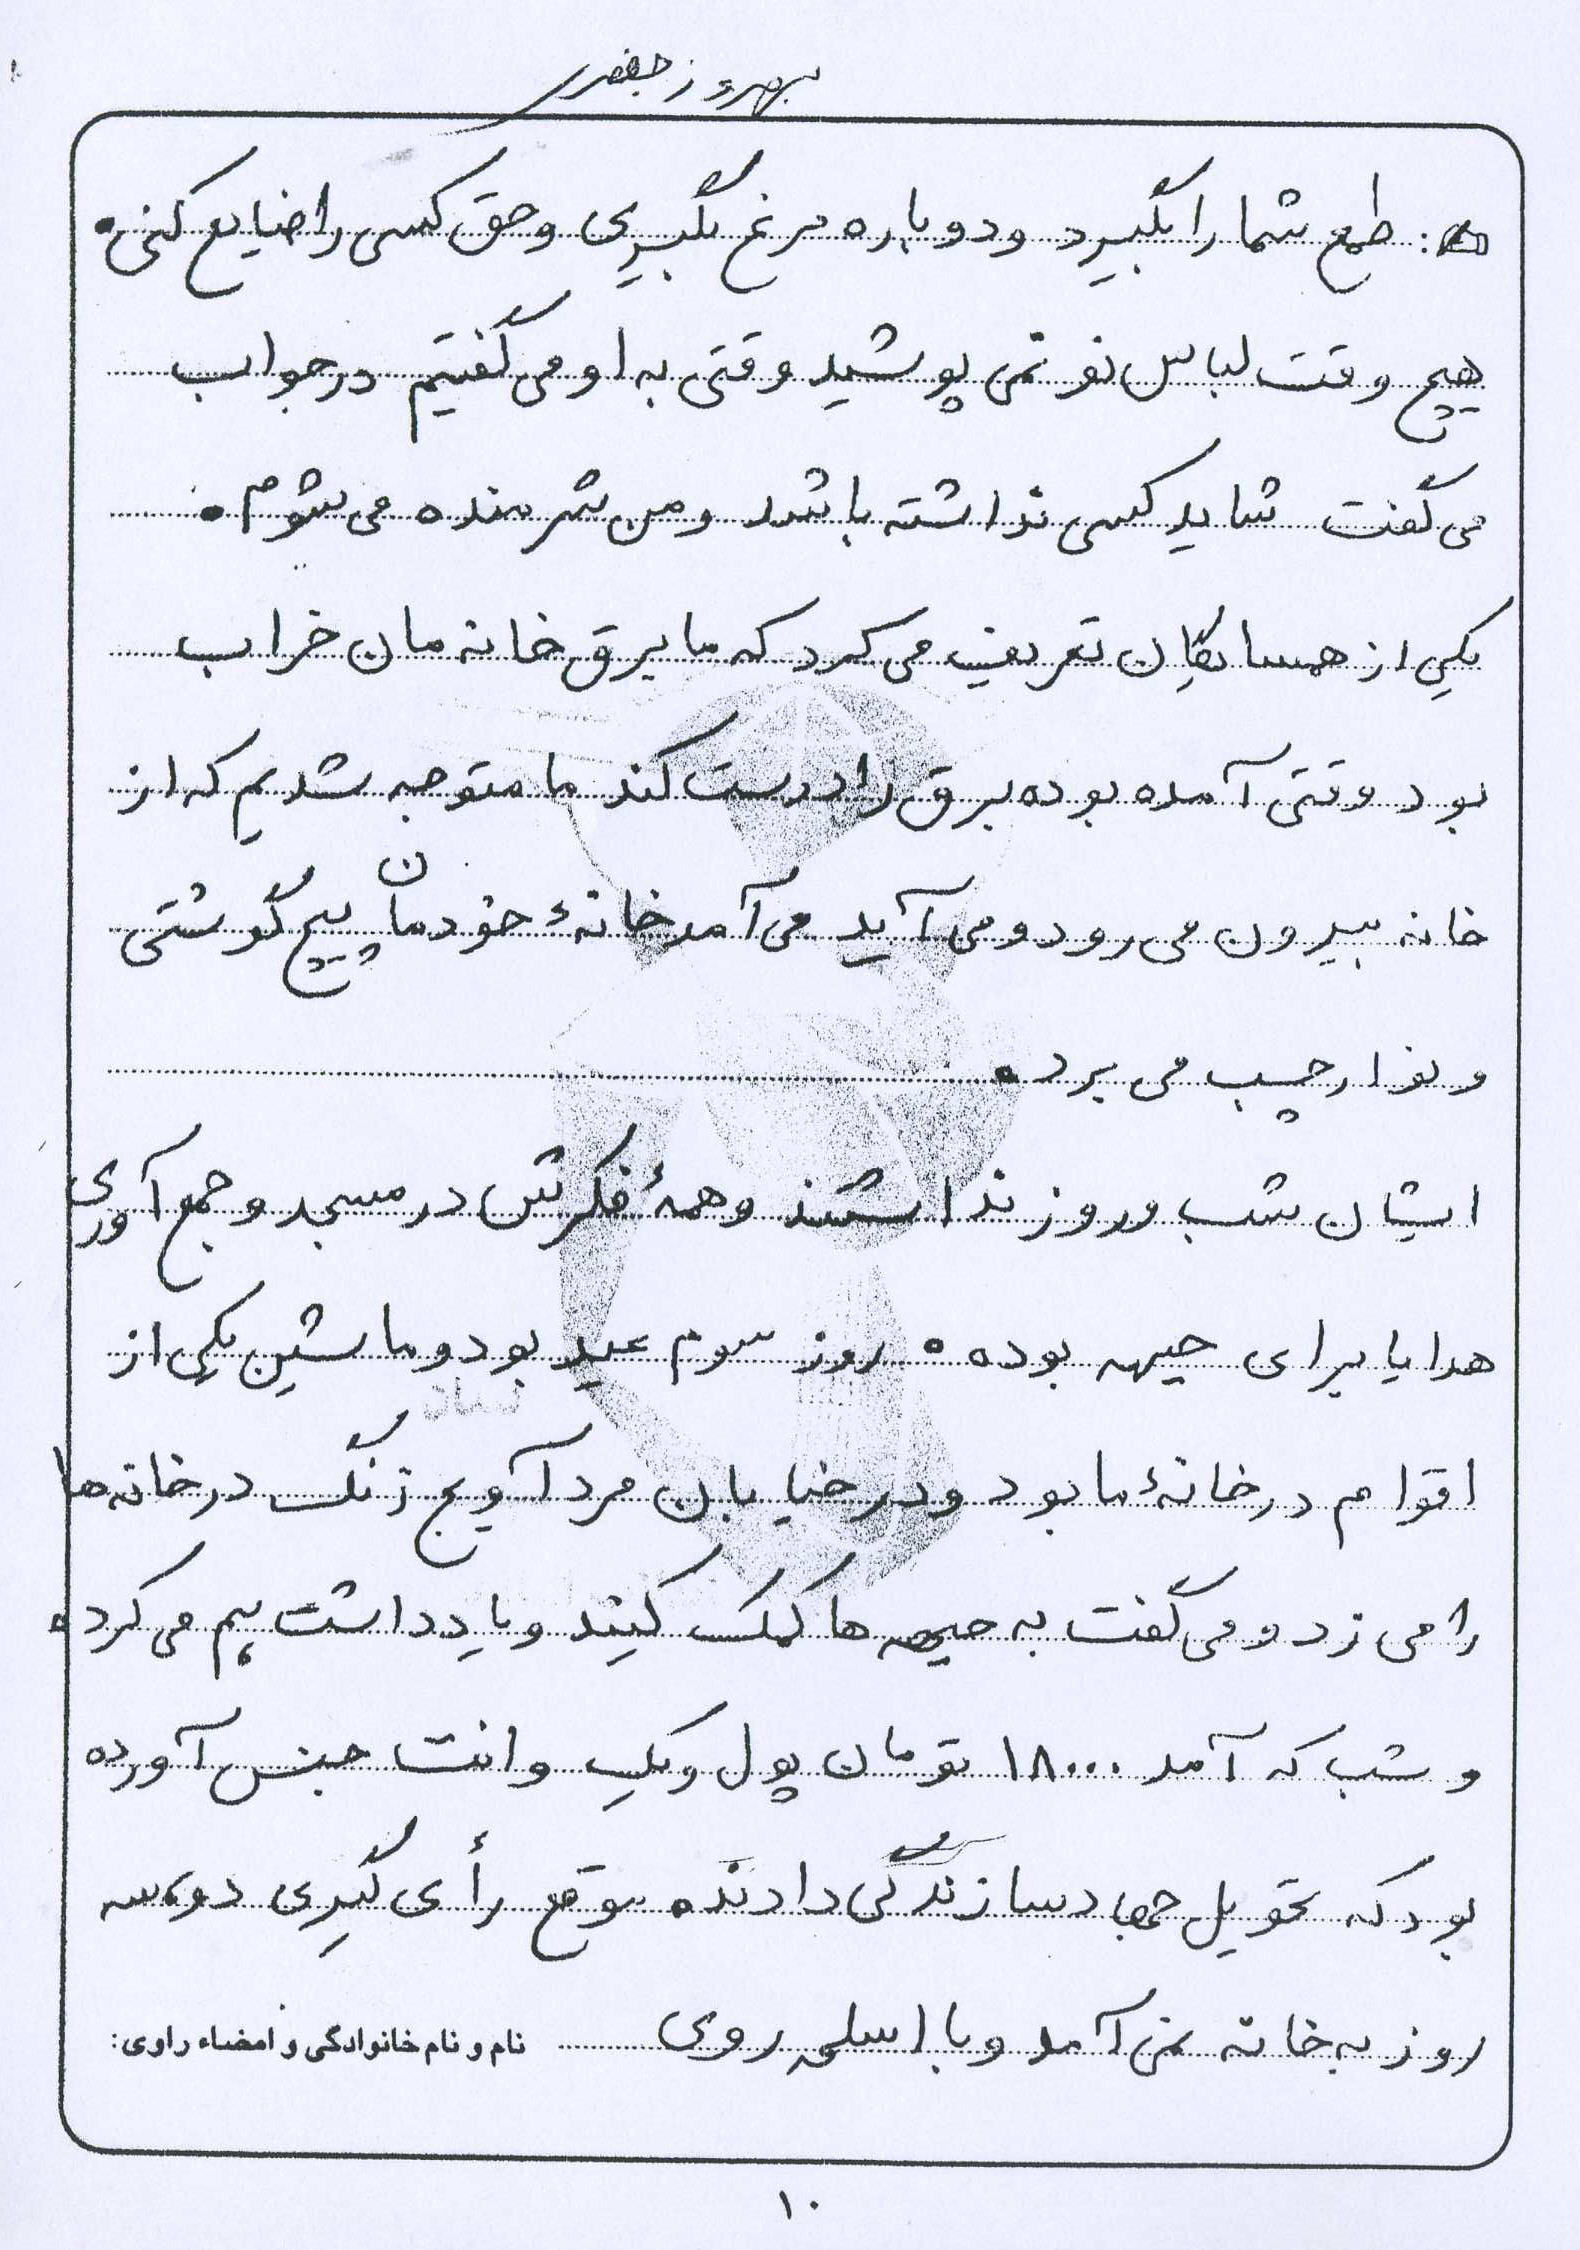 بهروز جعفری
طمع شما را بگیرد و دوباره مرغ بگیری و حق کسی را ضایع کنی.
هیچ وقت لباس نو نمی پوشید وقتی به او می گفتیم در جواب
می گفت شاید کسی نداشته باشد و من شرمنده می شوم.
یکی از همسایگان تعریف می کرد که ما برق خانه مان خراب
بود وقتی آمده بوده برق را درست کند ما متوجه شدیم که از
خانه بیرون می رود و می آید می آمد خانهٔ خودمان پیچ گوشتی
و نوار چسب می برده
ایشان شب و روز نداشتند و همهٔ فکرش در مسجد و جمع آوری
هدایا برای جبهه بوده. روز سوم عید بود و ماشین یکی از
اقوام در خانهٔ ما بود و در خیابان مرد آویج زنگ در خانه ها
را می زد و می گفت به جبهه ها کمک کنید و یادداشت هم می کرد.
و شب که آمد ۱۸۰۰۰ تومان پول و یک وانت جنس آورده
بود که تحویل جهاد سازندگی دادند. موقع رأی گیری دو، سه
روز به خانه نمی آمد و با اسلحه روی
نام و نام خانوادگی و امضاء راوی:
۱۰